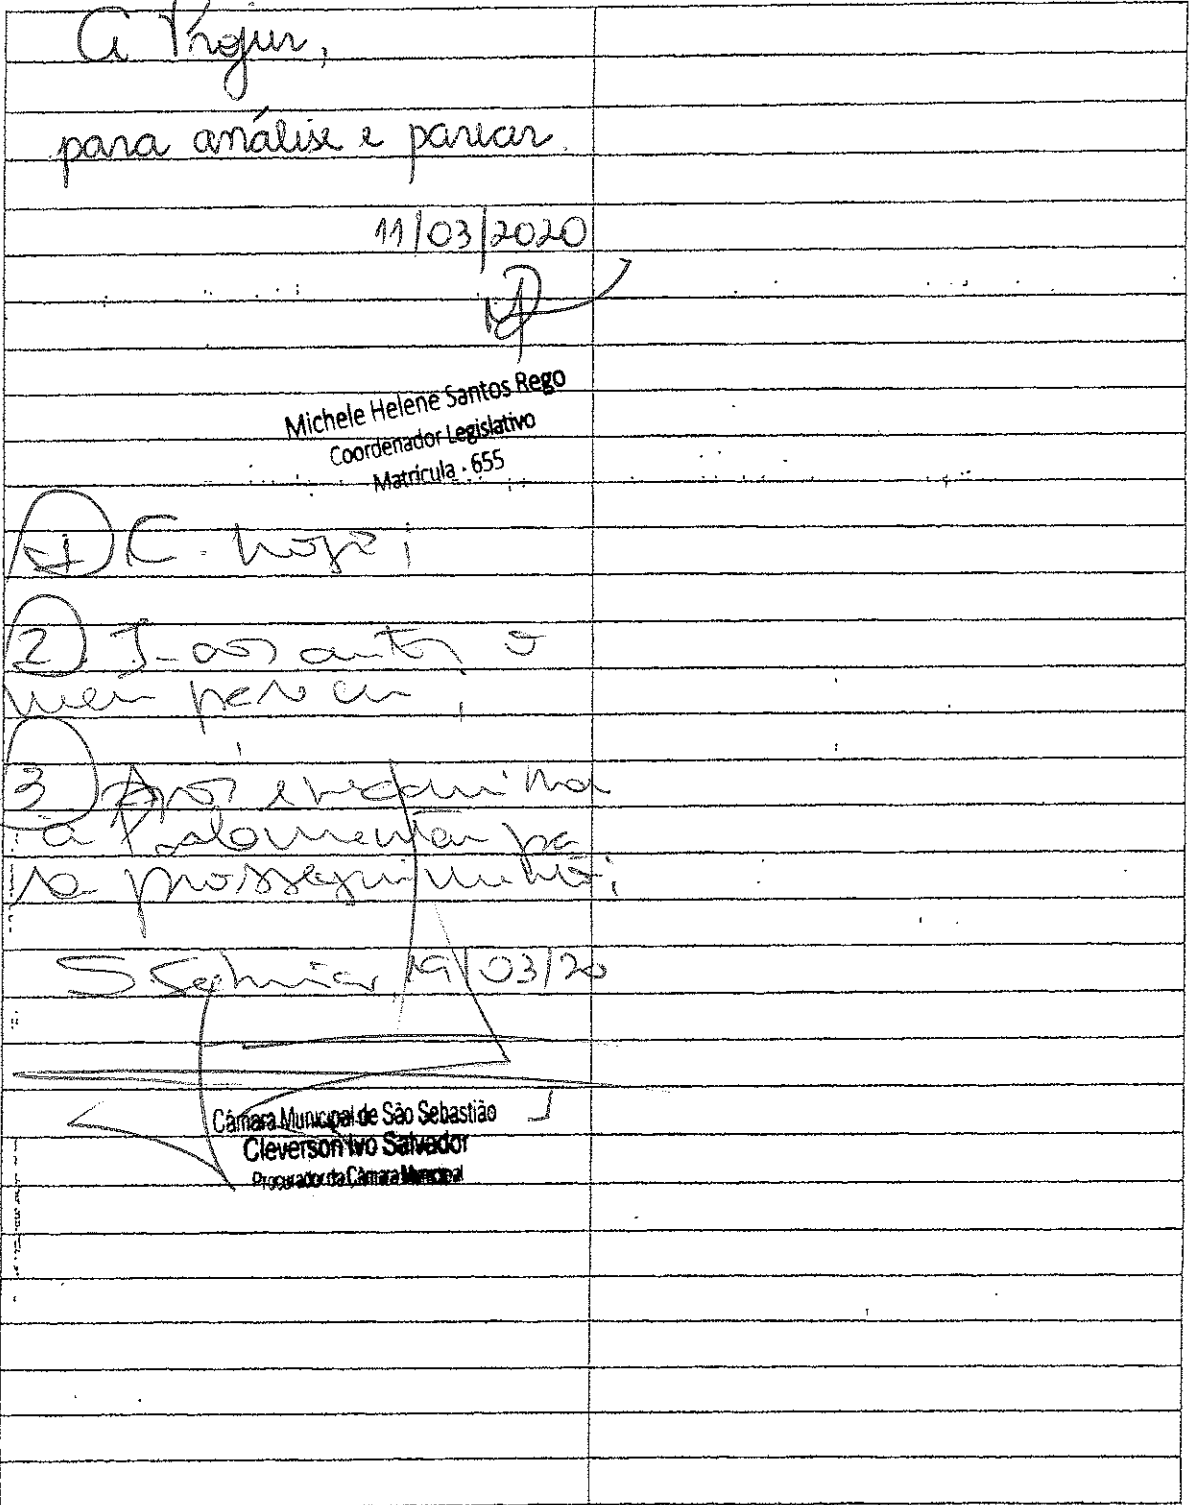 À Projur,
para análise e parecer.
11/03/2020
Michele Helene Santos Rego
Coordenador Legislativo
Matrícula - 655
1) C. hoje;
2) J-aos autos o
meu parecer;
3) Após encaminha
a Parlamentar pa
ra prosseguimento;
S. Sebastião, 19/03/20
Câmara Municipal de São Sebastião
Cleverson Ivo Salvador
Procurador da Câmara Municipal